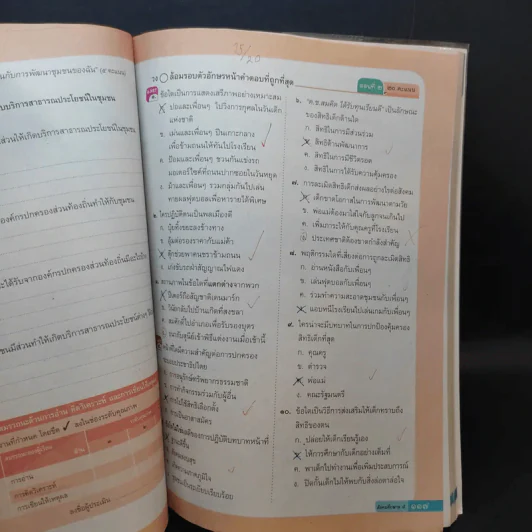 25/20
วง ○ ล้อมรอบตัวอักษรหน้าคำตอบที่ถูกที่สุด
ตอนที่ ๒ ๒๐ คะแนน
กับการพัฒนาชุมชนของฉัน" (๕ คะแนน)
บริการสาธารณประโยชน์ในชุมชน
ส่วนให้เกิดบริการสาธารณประโยชน์ในชุมชน
องค์กรปกครองส่วนท้องถิ่นทำให้กับชุมชน
ชนมีส่วนทำให้เกิดบริการสาธารณประโยชน์
การอ่าน
การคิดวิเคราะห์
การเขียนให้เหตุผล
ลงชื่อผู้ประเมิน
ข้อใดเป็นการแสดงเสรีภาพอย่างเหมาะสม
ก ปอและเพื่อนๆ ไปวิ่งการกุศลในวันเด็ก
แห่งชาติ
ข. เม่นและเพื่อนๆ ปีนเกาะกลาง
เพื่อข้ามถนนให้ทันไปโรงเรียน
ค. ป้อมและเพื่อนๆ ชวนกันแข่งรถ
มอเตอร์ไซค์ที่ถนนปากซอยในวันหยุด
ง. ม้าและเพื่อนๆ รวมกลุ่มกันไปเล่น
ทายผลฟุตบอลเพื่อหารายได้พิเศษ
๒. ใครปฏิบัติตนเป็นพลเมืองดี
ก. นุ้ยทิ้งขยะลงข้างทาง
ข. อุ้มต่อรองราคากับแม่ค้า
ค ตุ๊กช่วยพาคนชราข้ามถนน
ง. เก่งขับรถฝ่าสัญญาณไฟแดง
สถานภาพในข้อใดที่แตกต่างจากพวก
ก ปีเตอร์ถือสัญชาติเดนมาร์ก
ข. วินัยกลับไปบ้านเกิดที่สงขลา
ค. สมศักดิ์ไปอำเภอเพื่อรับรองบุตร
ข้อใดมีความสำคัญต่อการปกครอง
ระบอบประชาธิปไตย
ก. การอนุรักษ์ทรัพยากรธรรมชาติ
ข. การทำกิจกรรมร่วมกับผู้อื่น
ค การไปใช้สิทธิเลือกตั้ง
ง. การยืนเอกสารสมัคร
๖. "ด.ช.สมคิด ได้รับทุนเรียนดี" เป็นลักษณะ
ของสิทธิเด็กด้านใด
ก. สิทธิในการมีส่วนร่วม
ข สิทธิด้านพัฒนาการ
ค. สิทธิในการมีชีวิตรอด
ง. สิทธิในการได้รับความคุ้มครอง
๗. การละเมิดสิทธิเด็กส่งผลอย่างไรต่อสังคม
ก เด็กขาดโอกาสในการพัฒนาตามวัย
ข. พ่อแม่ต้องมาใส่ใจกับลูกจนเกินไป
ค. เพิ่มภาระให้กับคุณครูที่โรงเรียน
ง. ประเทศชาติต้องขาดกำลังสำคัญ
๘. พฤติกรรมใดที่เสี่ยงต่อการถูกละเมิดสิทธิ
ก. อ่านหนังสือกับเพื่อนๆ
ข. เล่นฟุตบอลกับเพื่อนๆ
ค. รวมทำความสะอาดชุมชนกับเพื่อนๆ
ง แอบหนีโรงเรียนไปเล่นเกมกับเพื่อนๆ
๙. ใครน่าจะมีบทบาทในการปกป้องคุ้มครอง
สิทธิเด็กที่สุด
ก. คุณครู
ข. ตำรวจ
ค พ่อแม่
ง. คณะรัฐมนตรี
๑๐. ข้อใดเป็นวิธีการส่งเสริมให้เด็กทราบถึง
สิทธิของตน
ก. ปล่อยให้เด็กเรียนรู้เอง
ข ให้การศึกษากับเด็กอย่างเต็มที่
ค. พาเด็กไปทำงานเพื่อเพิ่มประสบการณ์
ง. ปิดกั้นเด็กไม่ให้พบกับสิ่งล่อตาล่อใจ